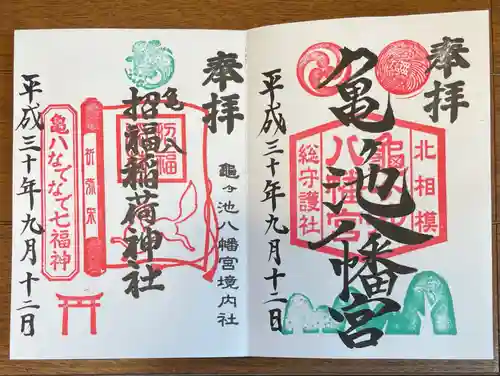 奉拝
北相模
亀ヶ池八幡宮
八幡宮
総守護社
平成三十年九月十二日
奉拝
亀ヶ池八幡宮境内社
亀八
招福
招福稲荷神社
亀八なでなで七福神
平成三十年九月十二日